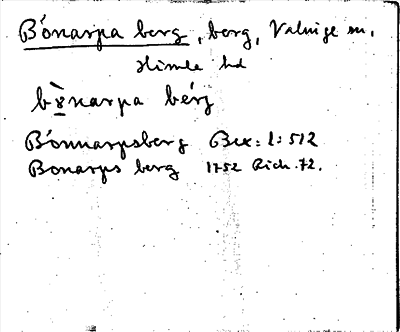 Bónarpa berg, berg, Valinge sn,
Himle hd
bònarpa bérg
Bónnarpsberg Bex: 1: 512
Bonarps berg 1752 Rich. 72.